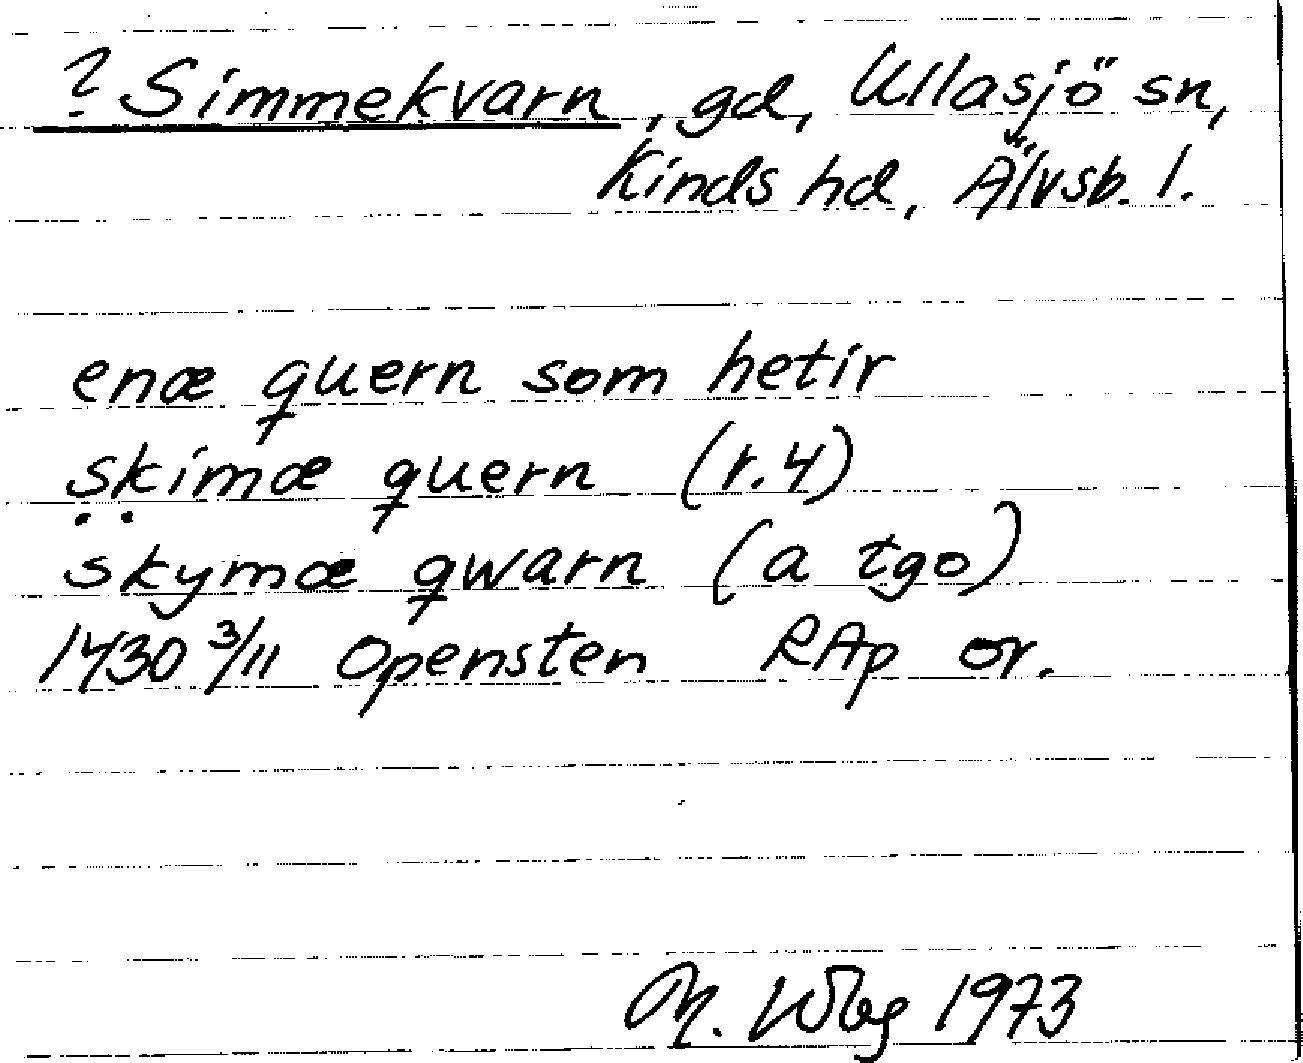 ? Simmekvarn, gd, Ullasjö sn,
Kinds hd, Älvsb. l.
enæ quern som hetir
skimæ quern (r.4)
skymæ qwarn (a tgo)
1430 3/11 Opensten RAp or.
M. Wbg 1973